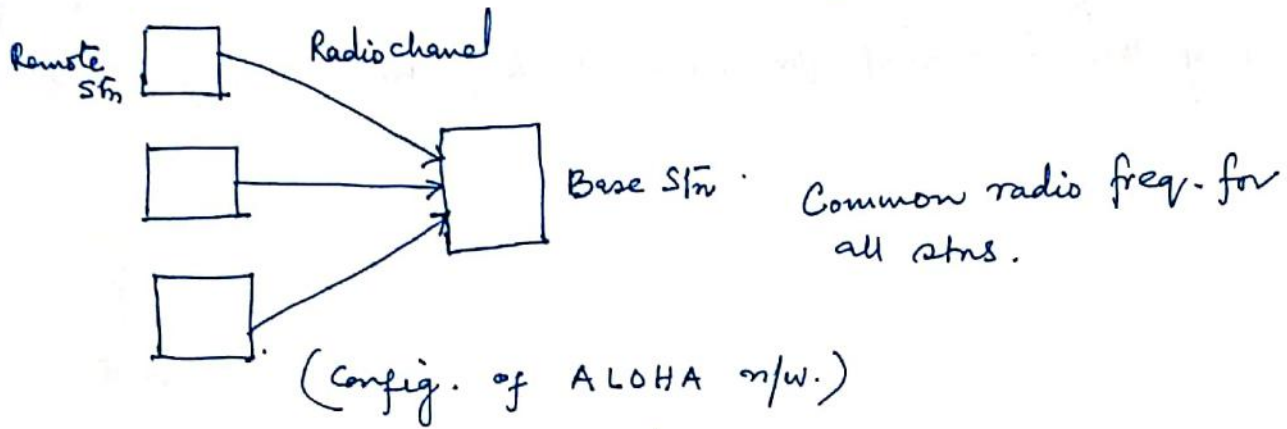 Remote
Stn
Radio chanel
Base Stn.
Common radio freq. for
all stns.
(Config. of ALOHA n/w.)